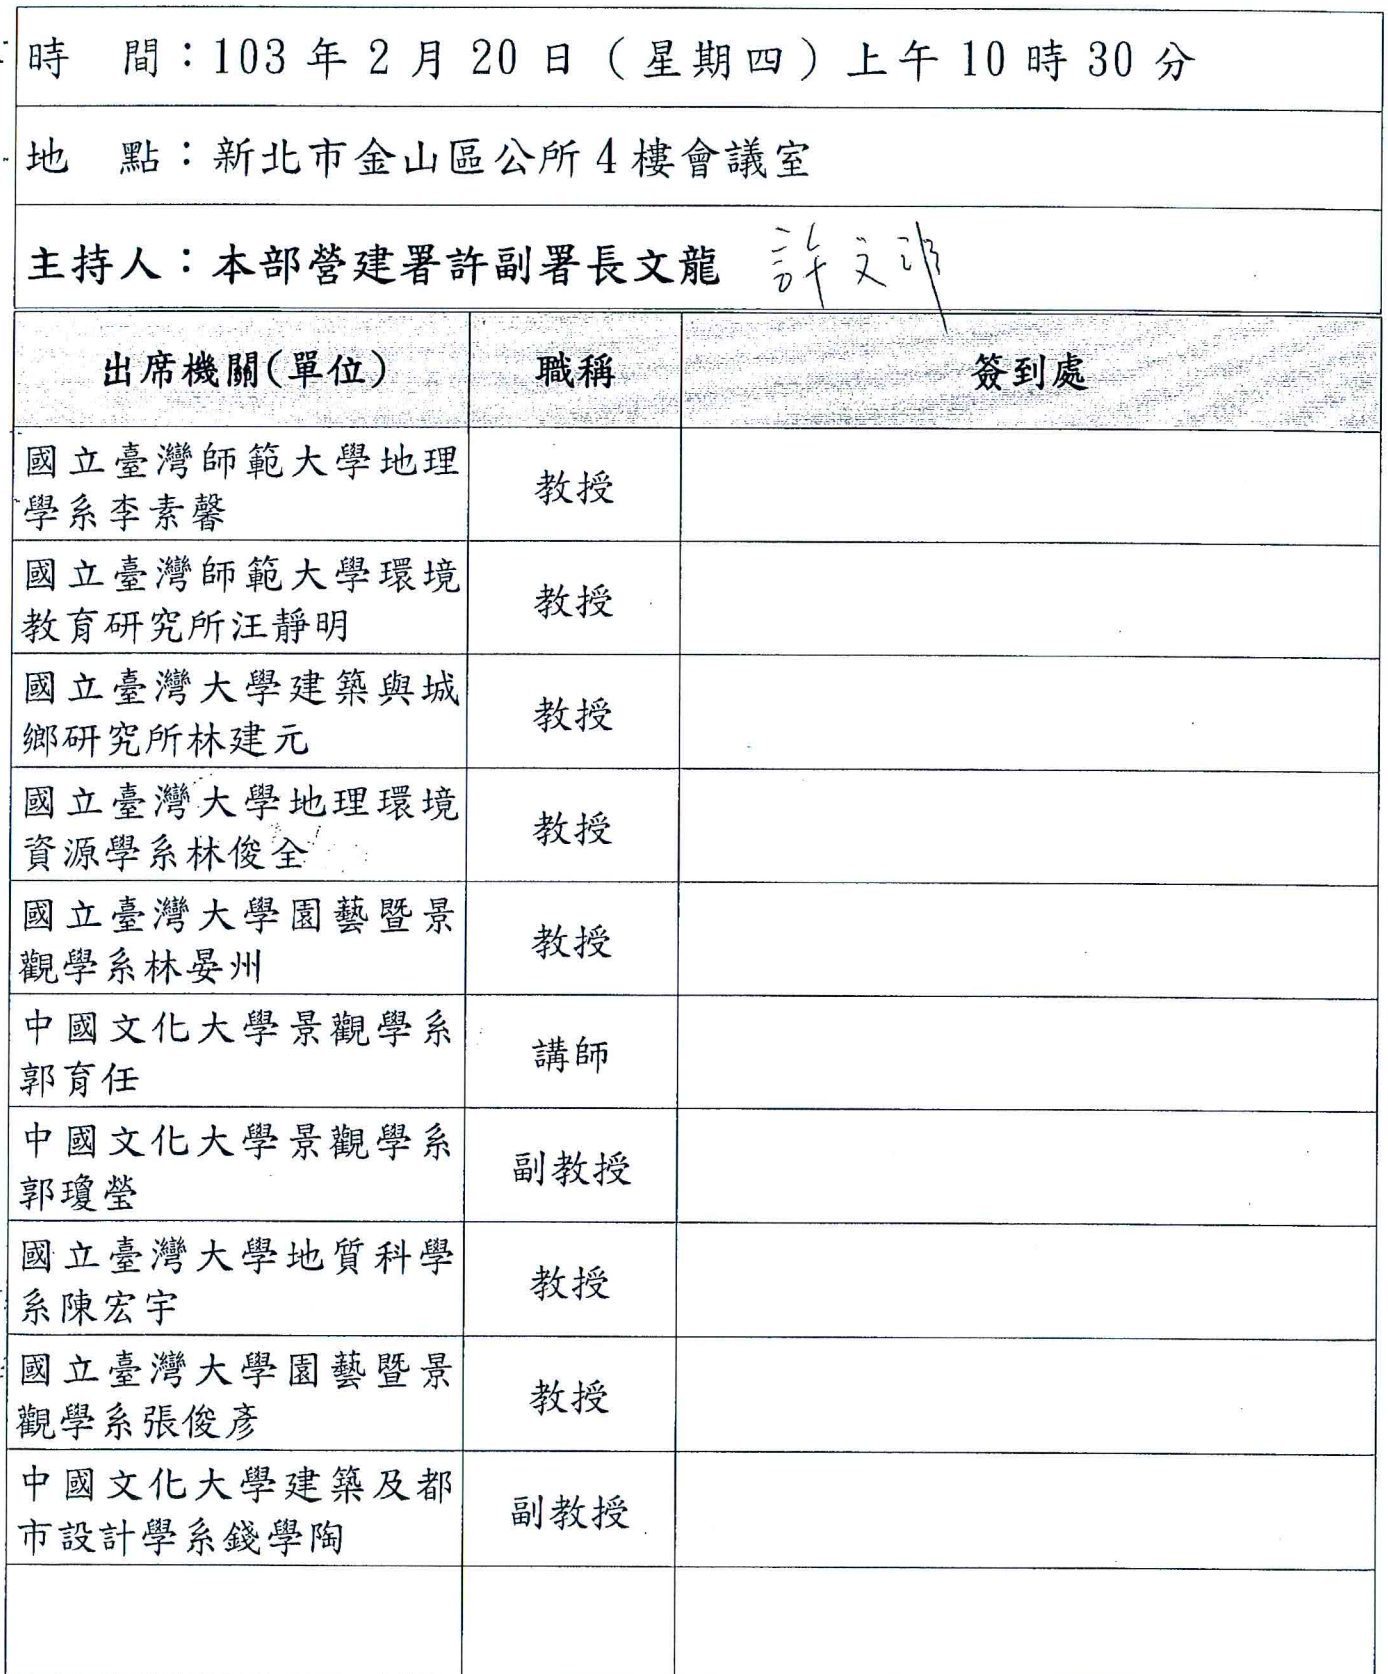 時　間：103年2月20日（星期四）上午10時30分
地　點：新北市金山區公所4樓會議室
主持人：本部營建署許副署長文龍 許文龍
出席機關(單位) 職稱 簽到處
國立臺灣師範大學地理
學系李素馨
教授
國立臺灣師範大學環境
教育研究所汪靜明
教授
國立臺灣大學建築與城
鄉研究所林建元
教授
國立臺灣大學地理環境
資源學系林俊全
教授
國立臺灣大學園藝暨景
觀學系林晏州
教授
中國文化大學景觀學系
郭育任
講師
中國文化大學景觀學系
郭瓊瑩
副教授
國立臺灣大學地質科學
系陳宏宇
教授
國立臺灣大學園藝暨景
觀學系張俊彥
教授
中國文化大學建築及都
市設計學系錢學陶
副教授